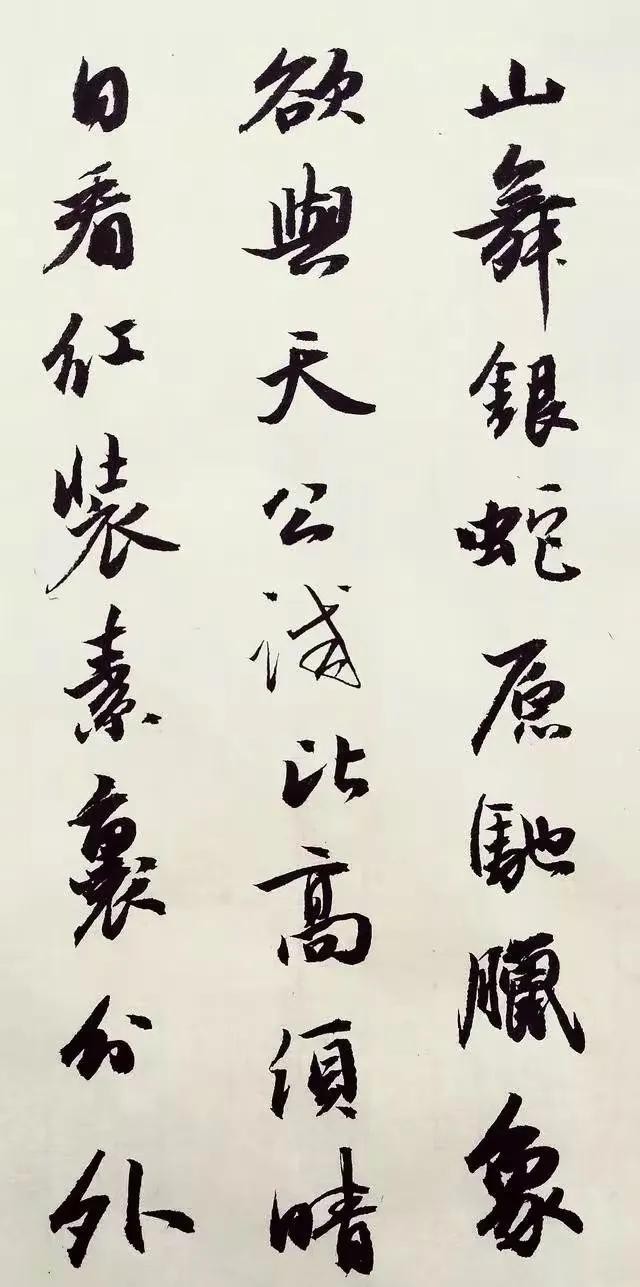 山舞銀蛇原馳臘象
欲與天公試比高須晴
日看紅裝素裹分外